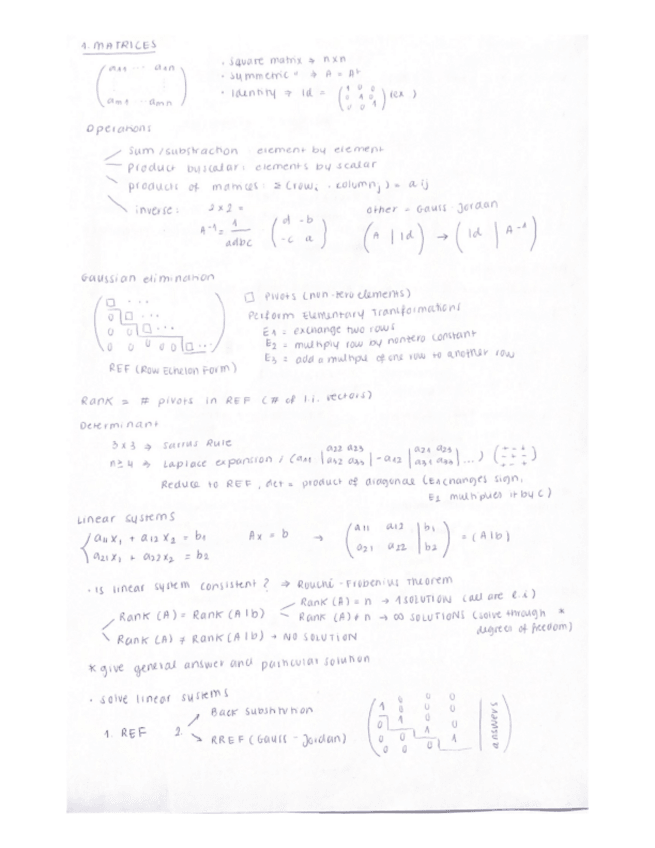 1. MATRICES
( a11 ... a1n
am1 ... amn )
· Square matrix → n×n
· Symmetric " → A = Aᵗ
· Identity → Id = ( 1 0 0
0 1 0
0 0 1 ) (ex )
Operations
Sum/substraction element by element
Product by scalar: elements by scalar
products of matrices: Σ(rowᵢ · columnⱼ) = aij
inverse: 2x2 =
A⁻¹ = 1
adbc
( d -b
-c a )
other - Gauss-Jordan
( A | Id ) → ( Id | A⁻¹ )
Gaussian elimination
□ ...
0 □ ...
0 0 □ ...
0 0 0 0 □ ...
REF (Row Echelon Form)
□ Pivots (non-zero elements)
Perform Elementary Transformations
E1 = exchange two rows
E2 = multiply row by nonzero constant
E3 = add a multipl of one row to another row
Rank = # pivots in REF (# of l.i. vectors)
Determinant
3x3 → Sarrus Rule
n≥4 → Laplace expansion: (a11 | a22 a23
a32 a33 | - a12 | a21 a23
a31 a33 | ...) ( + - +
- + -
+ - + )
Reduce to REF, det = product of diagonal (E1 changes sign,
E2 multiplies it by c)
Linear systems
a11x1 + a12x2 = b1
a21x1 + a22x2 = b2
Ax = b →
( a11 a12 | b1
a21 a22 | b2 ) = (A|b)
· Is linear system consistent? → Rouché-Frobenius Theorem
Rank (A) = Rank (A|b)
Rank (A) = n → 1 SOLUTION (all are l.i)
Rank (A) ≠ n → ∞ SOLUTIONS (solve through *
degrees of freedom)
Rank (A) ≠ Rank (A|b) → NO SOLUTION
* give general answer and particular solution
· Solve linear systems
1. REF 2. Back substitution
RREF (Gauss-Jordan)
1 0 0 0
0 1 0 0
0 0 1
0 0 0
answers